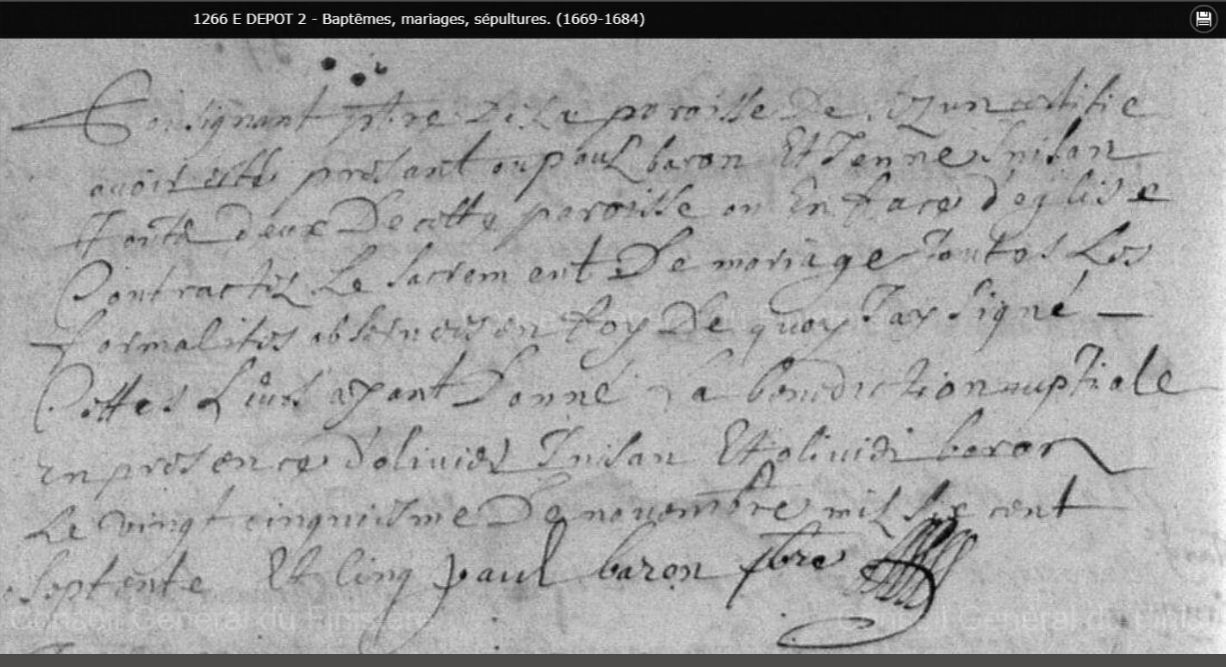 1266 E DEPOT 2 - Baptêmes, mariages, sépultures. (1669-1684)
Sousignant ptre de la paroisse De certifie
avoir este presant ou paul baron Et Jenne Inisan
touts deux De cette paroisse on En face d'eglise
Contractes Le sacrement De mariage toutes Les
formalites observees en foy De quoy Jay signé
Cettes Leurs ayant Donné La benediction nuptiale
En presence d'olivier Inisan Et olivier baron
Le vingt cinquiesme De novembre mil six cent
septente Et cinq paul baron pbre
Conseil Général du Finistère
Conseil Général du Finistère